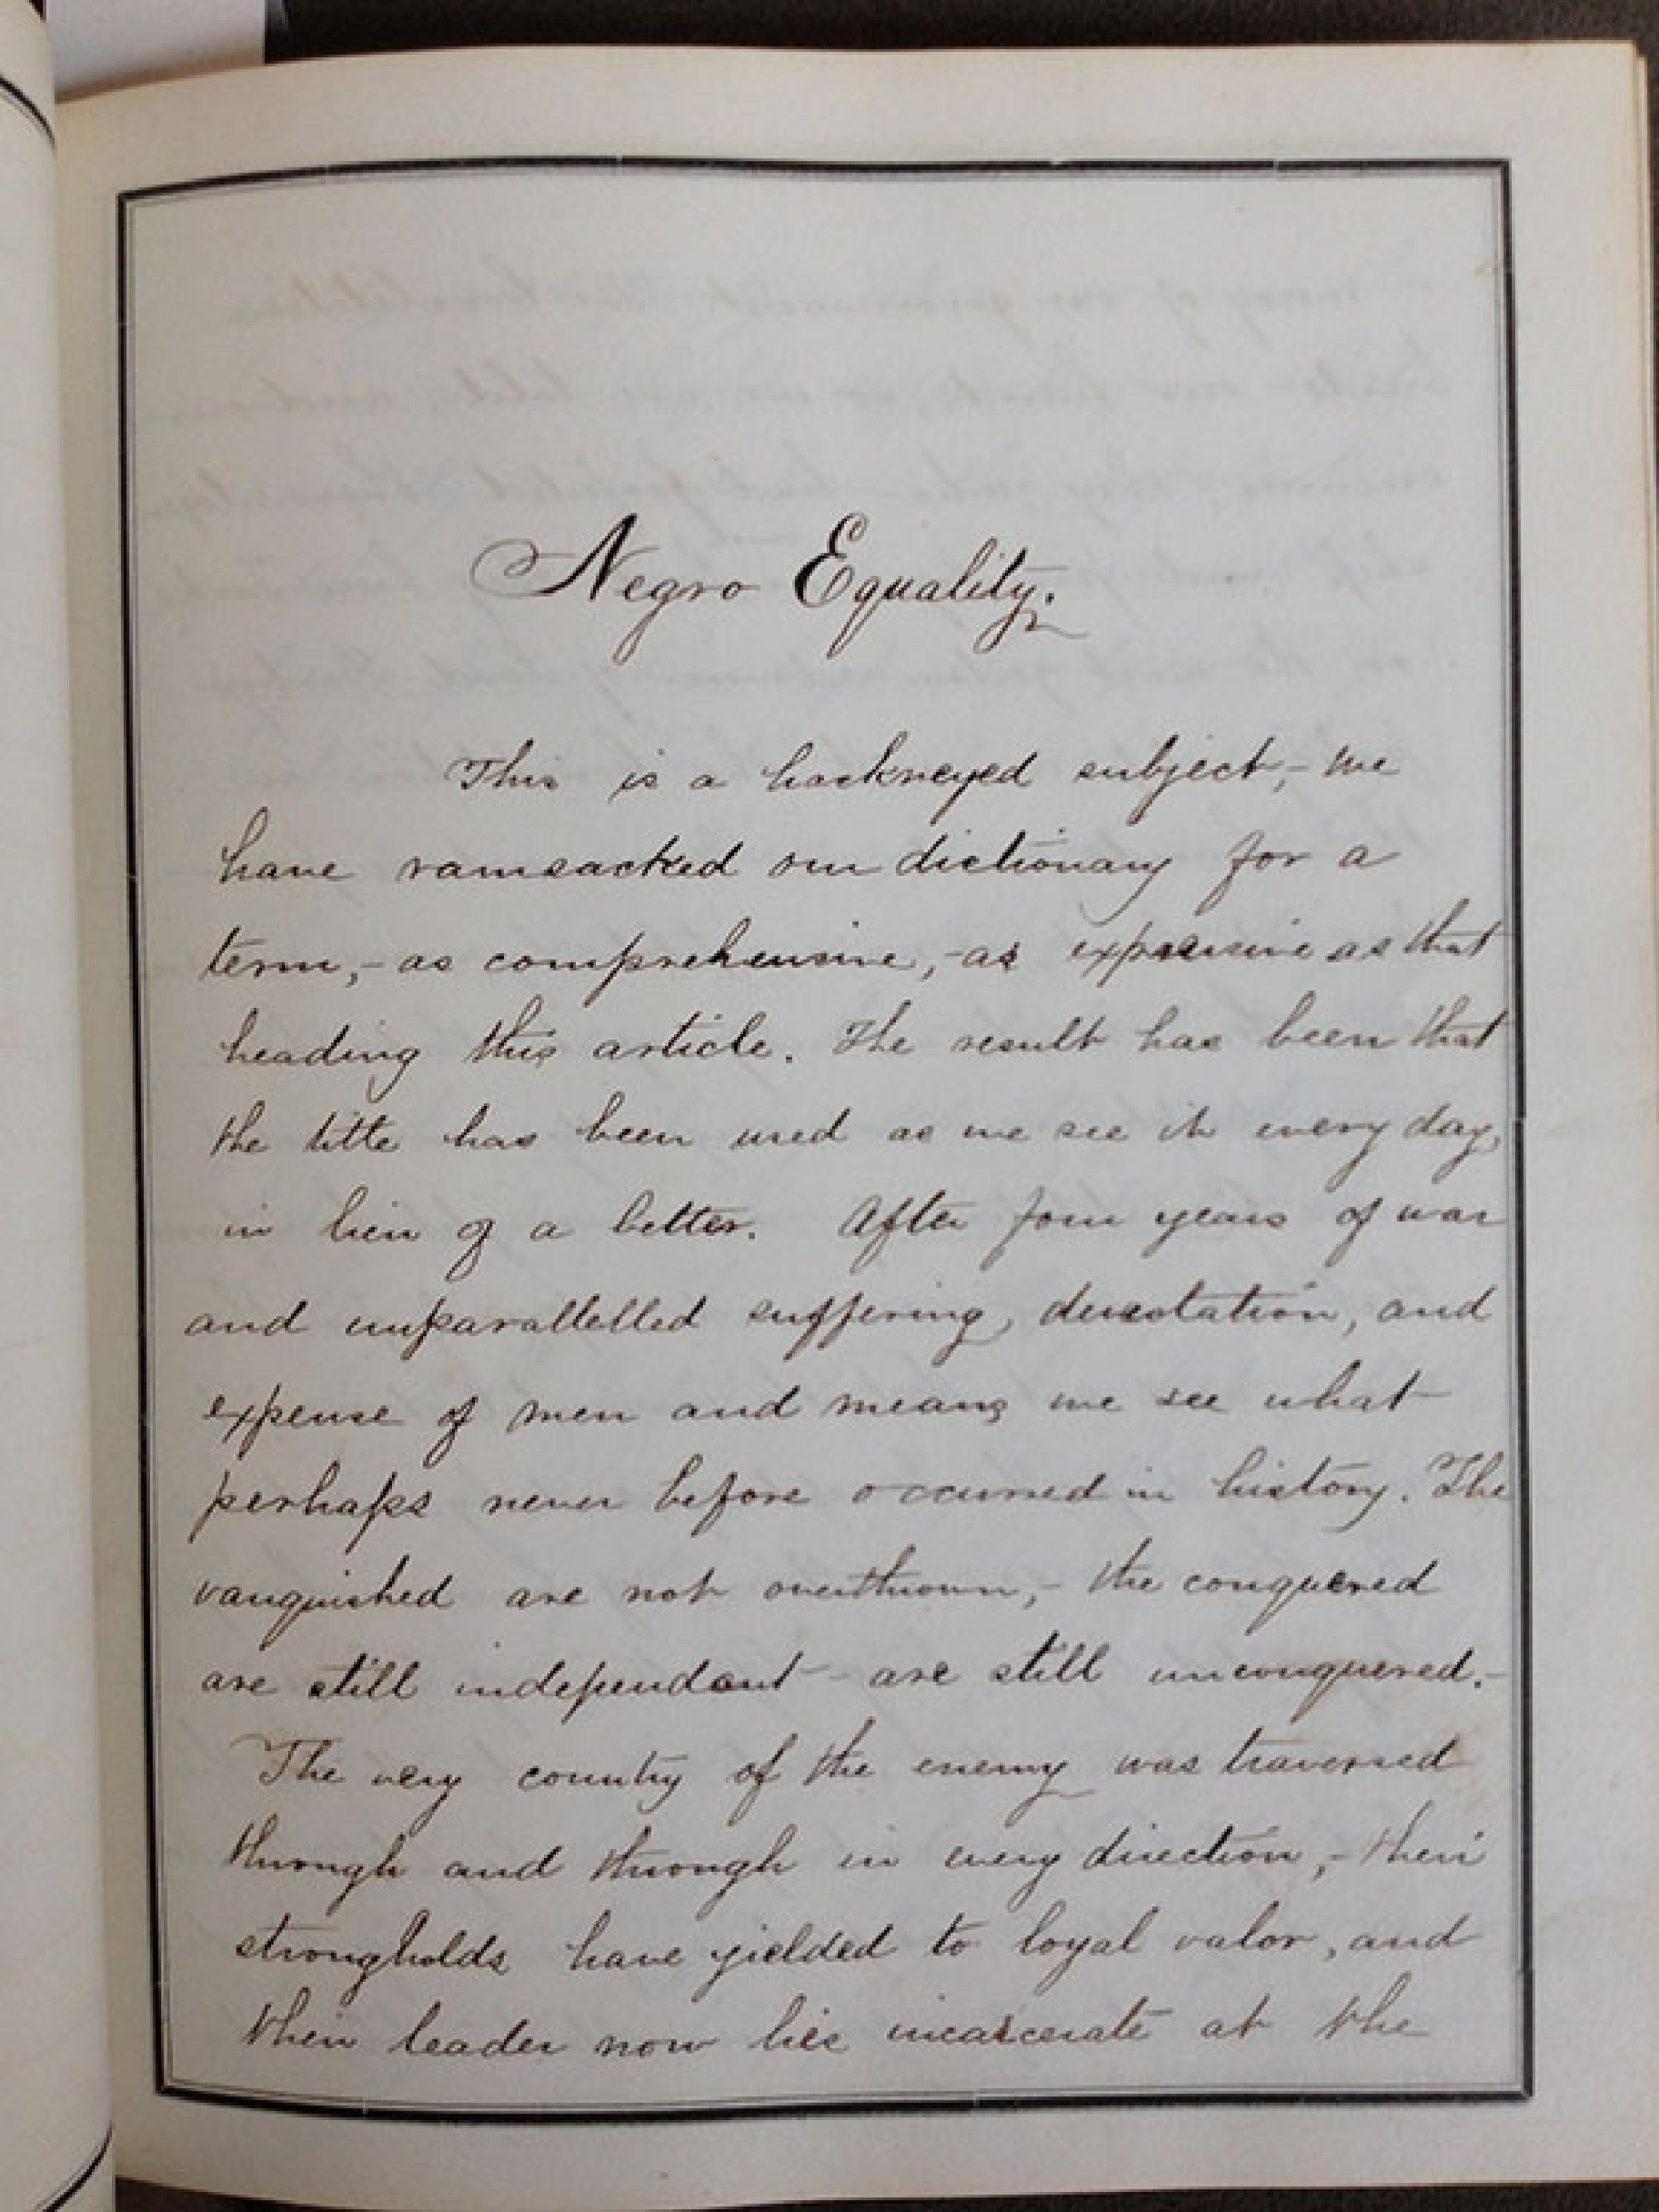 Negro Equality.
This is a hackneyed subject,- we
have ransacked our dictionary for a
term,- as comprehensive,- as expressive as that
heading this article. The result has been that
the title has been used as we see it every day,
in lieu of a better. After four years of war
and unparallelled suffering, desolation, and
expense of men and means we see what
perhaps never before occurred in history. The
vanquished are not overthrown,- the conquered
are still independant - are still unconquered.-
The very country of the enemy was traversed
through and through in every direction,- their
strongholds have yielded to loyal valor, and
their leader now lies incarcerate at the